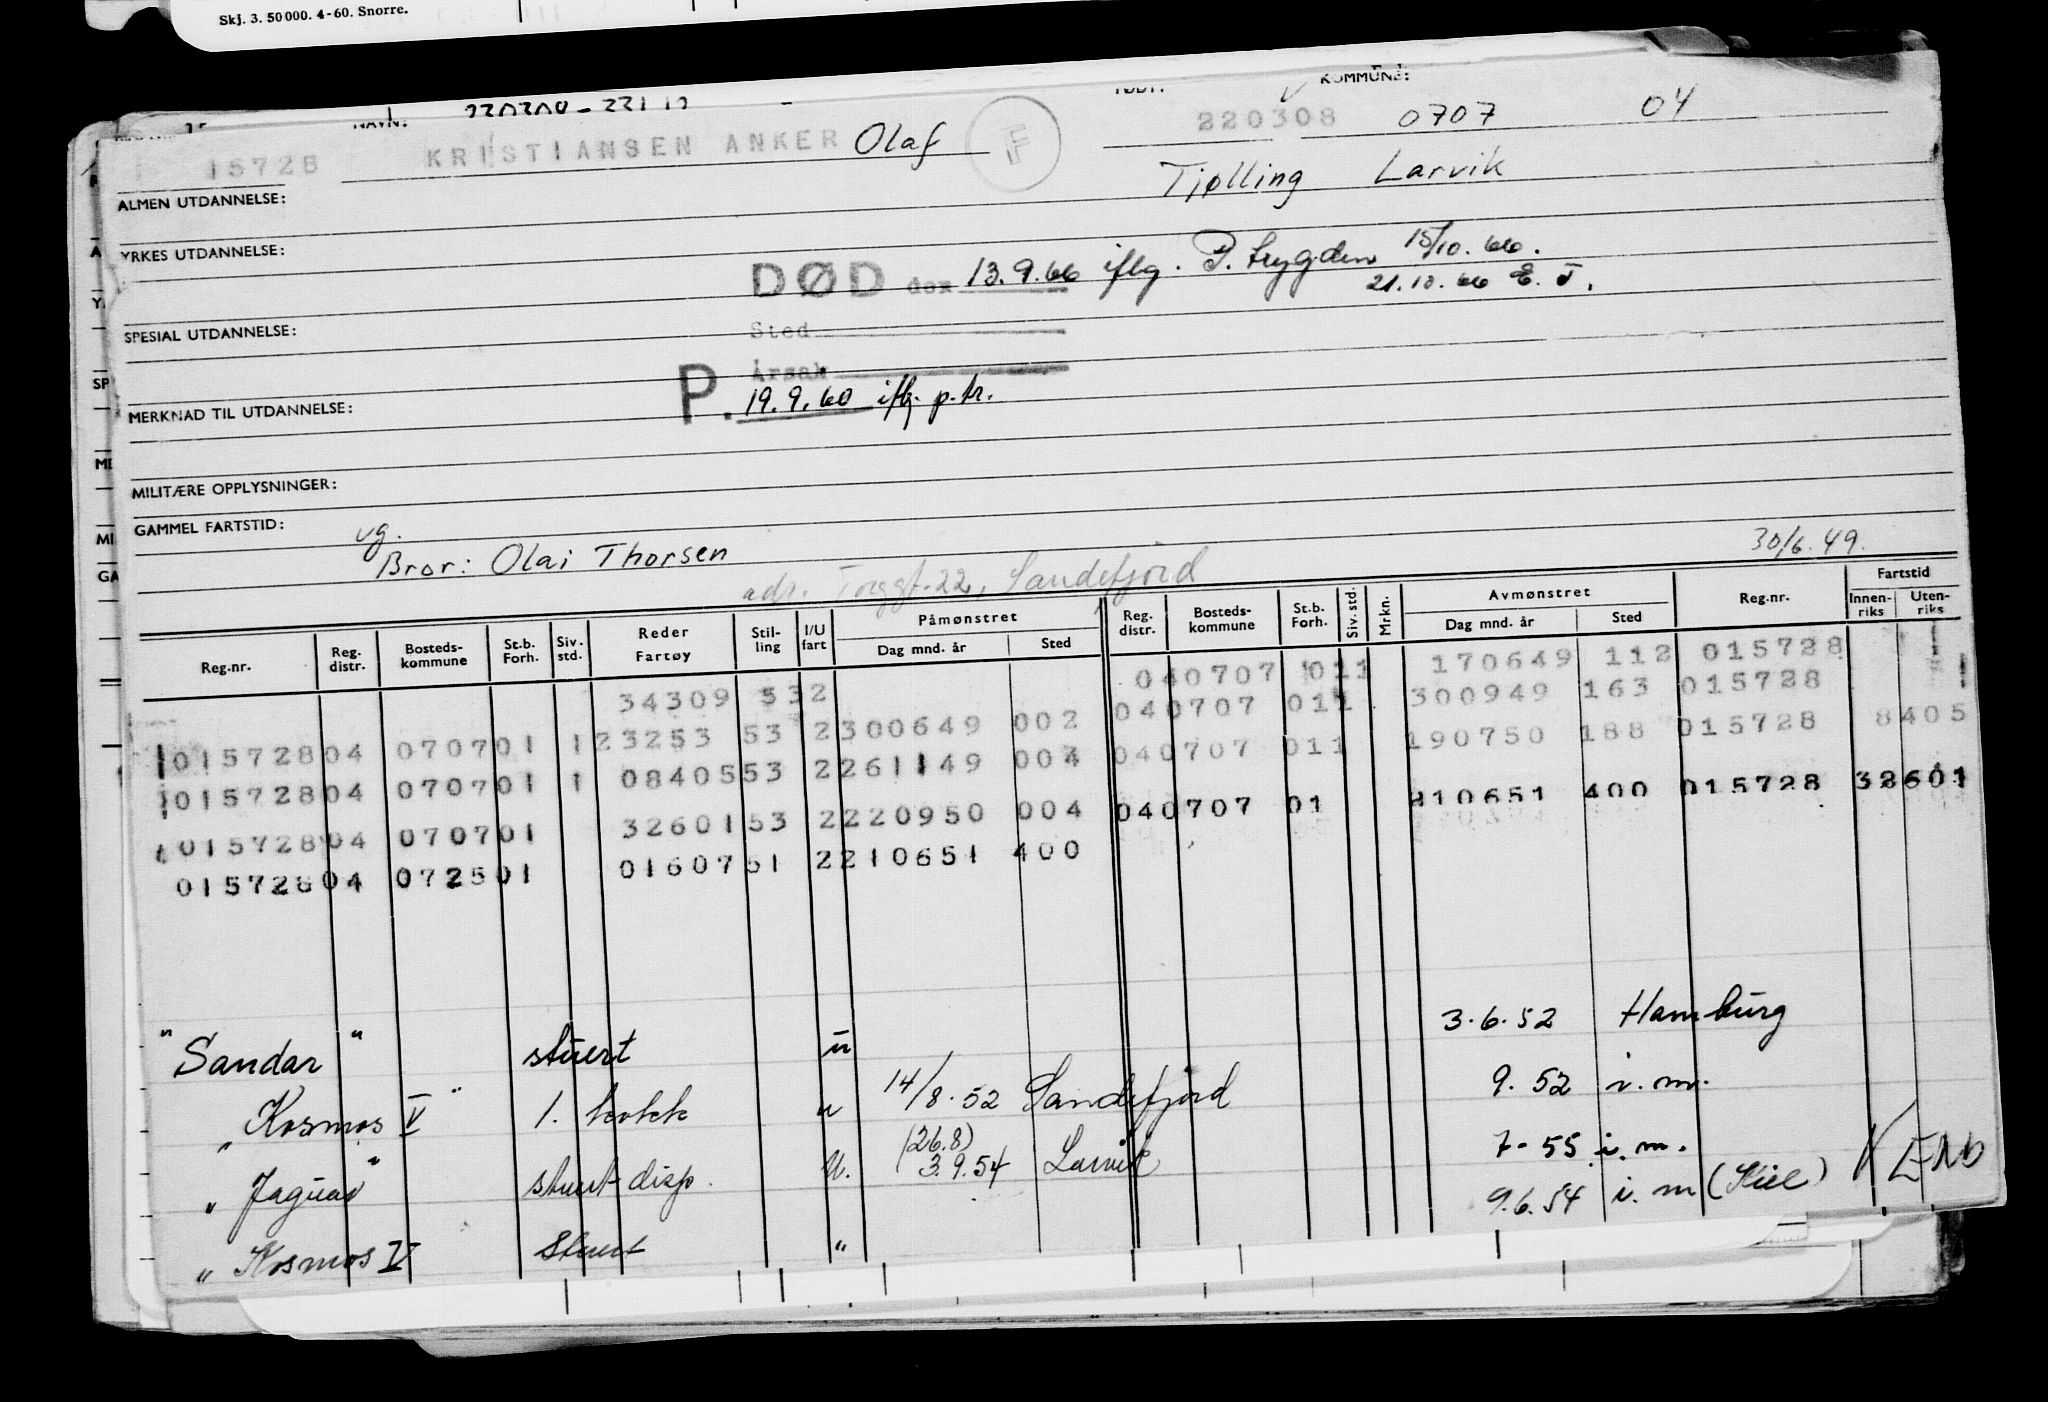 Skj. 3. 50 000. 4-60. Snorre.
NAVN: KOMMUNE:
15728 KRISTIANSEN ANKER Olaf 220308 0707 04
Tjølling Larvik
ALMEN UTDANNELSE:
YRKES UTDANNELSE:
DØD den 13.9.66 iflg. P. trygden 15/10.66.
21.10.66 E.T.
SPESIAL UTDANNELSE:
Sted
Årsak
P. 19.9.60 iflg. p.tr.
MERKNAD TIL UTDANNELSE:
MILITÆRE OPPLYSNINGER:
GAMMEL FARTSTID:
vg.
Bror: Olai Thorsen 30/6.49.
adr. Torggt. 22, Sandefjord
Reg.nr. Reg. distr. Bosteds- kommune St.b. Forh. Siv. std. Reder Fartøy Stil- ling I/U fart Påmønstret Dag mnd. år Sted Reg. distr. Bosteds- kommune St.b. Forh. Siv. std. Mrkn. Avmønstret Dag mnd. år Sted Reg.nr. Fartstid Innen- riks Uten- riks
34309 532 040707 011 170649 112 015728
015728 04 0707 01 1 23253 53 2 300649 002 040707 011 300949 163 015728
015728 04 0707 01 1 08405 53 2 261149 004 040707 011 190750 188 015728 8405
015728 04 0707 01 32601 53 2 220950 004 040707 01 210651 400 015728 32601
015728 04 0725 01 01607 51 2 210651 400
"Sandar" stuert u 3.6.52 Hamburg
"Kosmos V" 1. kokk u 14/8.52 Sandefjord 9.52 i.m.
"Jaguar" stuert disp. U. (26.8) 3.9.54 Larvik 7-55 i.m.
"Kosmos V stuert " 9.6.54 i.m (Kiel) V END